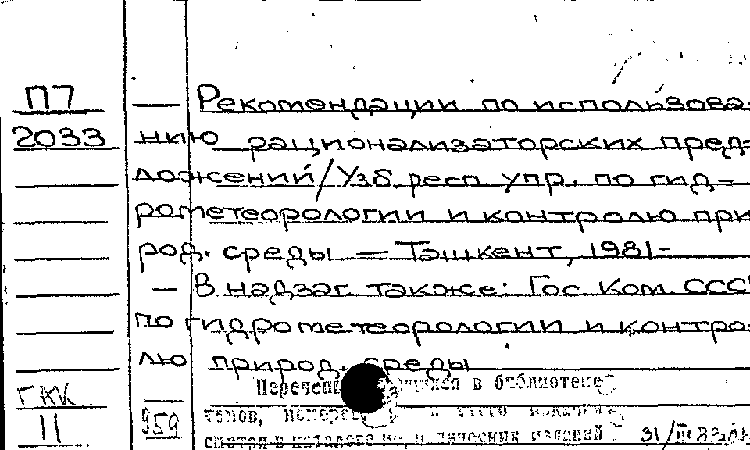 П7 — Рекомендации по использова-
2033 нию рационализаторских пред-
ложений/Узб. респ. упр. по гид-
рометеорологии и контролю при
род. среды — Ташкент, 1981-
— В надзаг. также: Гос. Ком. ССС
по гидрометеорологии и контро-
лю природ. среды
ГКК Перечень в библиотеке
11 959 томов,
31/III